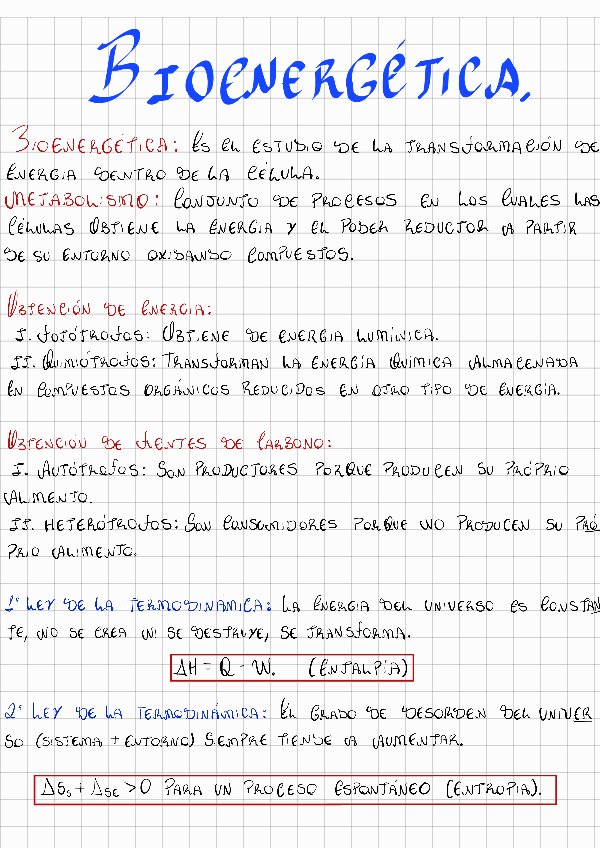 BIOENERGÉTICA.
BIOENERGÉTICA: ES EL ESTUDIO DE LA TRANSFORMACIÓN DE
ENERGIA DENTRO DE LA CÉLULA.
METABOLISMO: CONJUNTO DE PROCESOS EN LOS CUALES LAS
CÉLULAS OBTIENE LA ENERGIA Y EL PODER REDUCTOR A PARTIR
DE SU ENTORNO OXIDANDO COMPUESTOS.
OBTENCIÓN DE ENERGIA:
I. FOTÓTROFOS: OBTIENE DE ENERGIA LUMÍNICA.
II. QUIMIÓTROFOS: TRANSFORMAN LA ENERGÍA QUÍMICA ALMACENADA
EN COMPUESTOS ORGÁNICOS REDUCIDOS EN OTRO TIPO DE ENERGÍA.
OBTENCION DE FUENTES DE CARBONO:
I. AUTÓTROFOS: SON PRODUCTORES PORQUE PRODUCEN SU PRÓPRIO
ALIMENTO.
II. HETERÓTROFOS: SON CONSUMIDORES PORQUE NO PRODUCEN SU PRÓ
PRIO ALIMENTO.
1° LEY DE LA TERMODINAMICA: LA ENERGIA DEL UNIVERSO ES CONSTAN
TE, NO SE CREA NI SE DESTRUYE, SE TRANSFORMA.
ΔH = Q - W. (ENTALPÍA)
2° LEY DE LA TERMODINÁMICA: EL GRADO DE DESORDEN DEL UNIVER
SO (SISTEMA + ENTORNO) SIEMPRE TIENDE A AUMENTAR.
ΔSs + ΔSE > 0 PARA UN PROCESO ESPONTÁNEO (ENTROPIA).